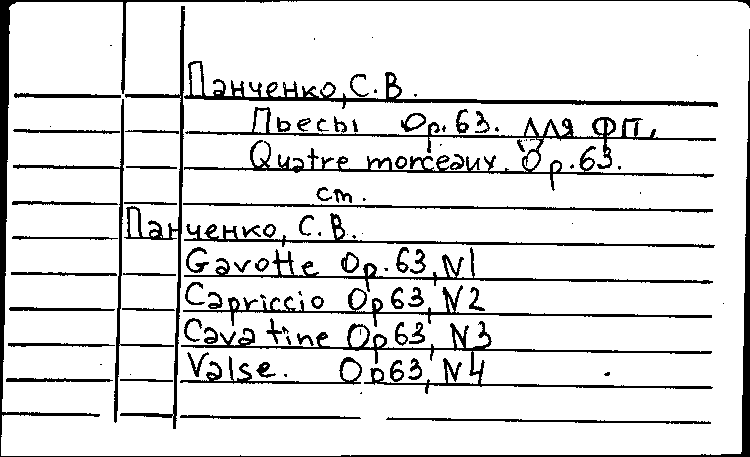 Панченко, С.В.
Пьесы Op.63. для ФП.
Quatre morceaux. Op.63.
ст.
Панченко, С.В.
Gavotte Op.63, N1
Capriccio Op63, N2
Cavatine Op63, N3
Valse. Op63, N4